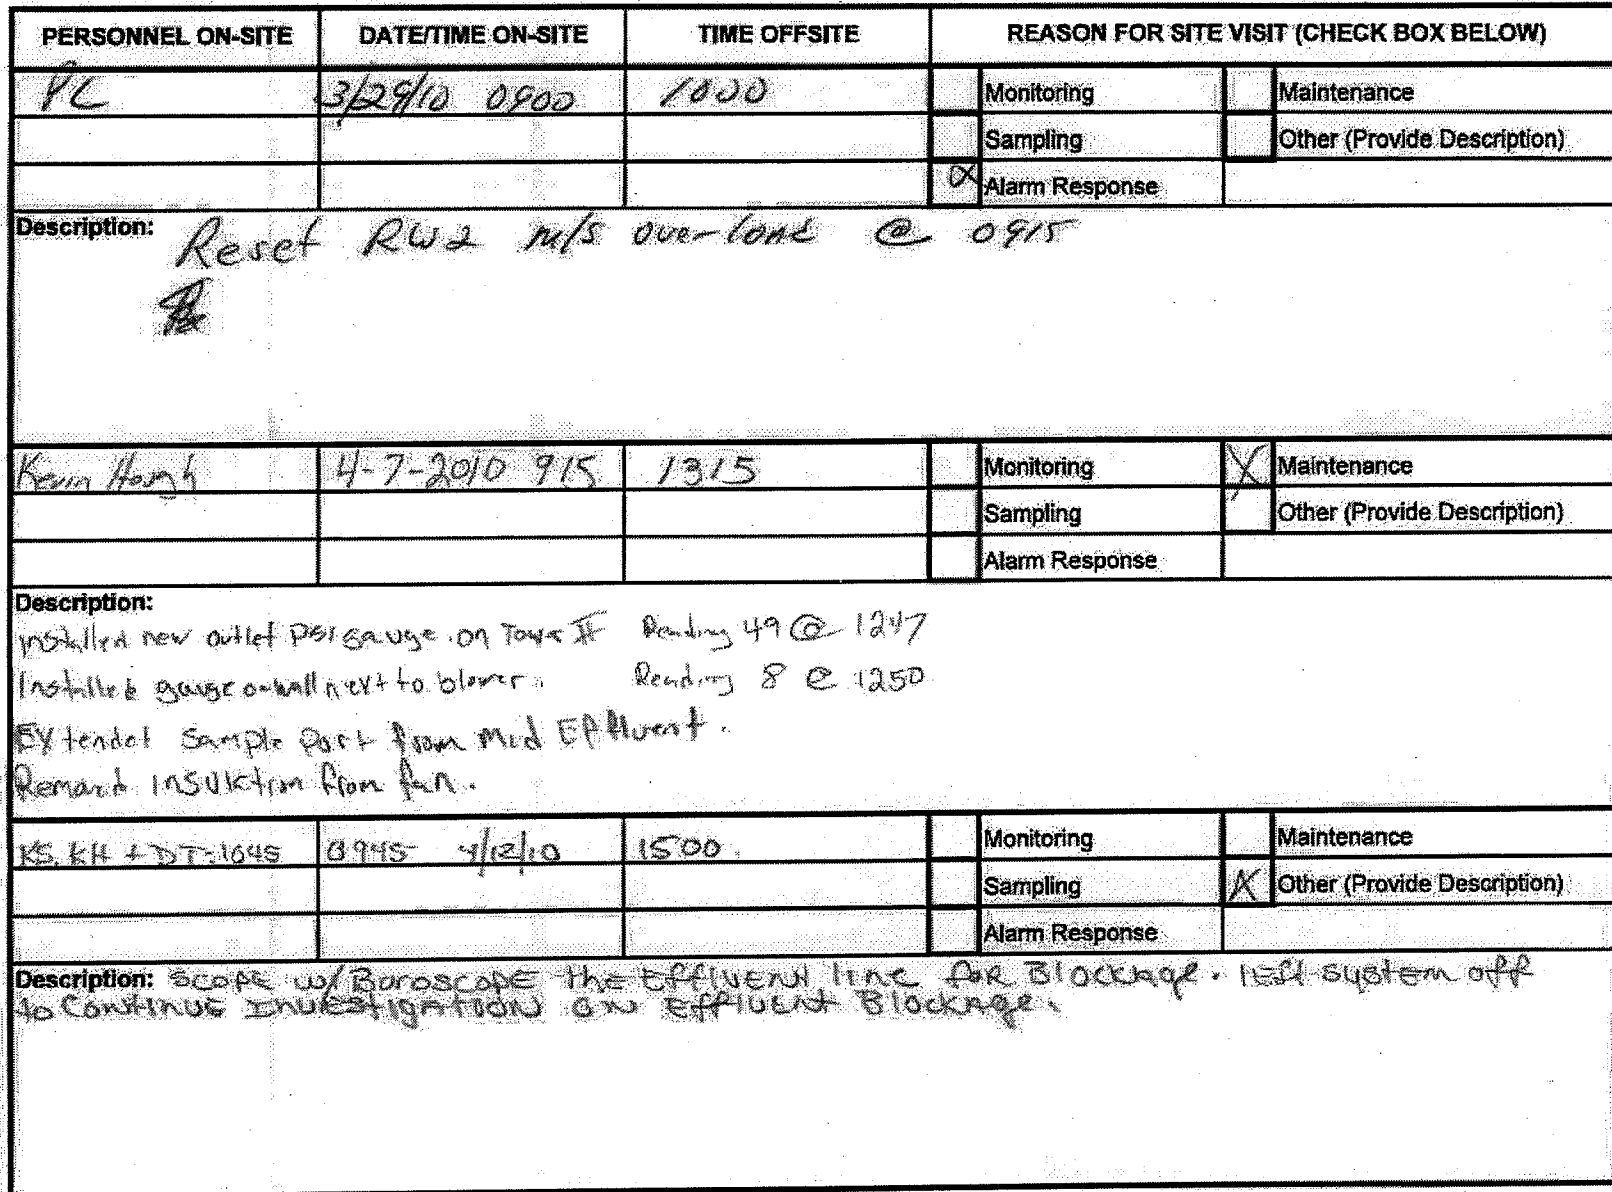 PERSONNEL ON-SITE DATE/TIME ON-SITE TIME OFFSITE REASON FOR SITE VISIT (CHECK BOX BELOW)
PC 3/29/10 0900 1000 Monitoring Maintenance
Sampling Other (Provide Description)
X Alarm Response
Description: Reset RW2 m/s overload @ 0915
Kevin Hough 4-7-2010 915 1315 Monitoring X Maintenance
Sampling Other (Provide Description)
Alarm Response
Description:
Installed new outlet psi gauge on Tower II Reading 49 @ 1247
Installed gauge on wall next to blower. Reading 8 @ 1250
Extended Sample Port from Mid Effluent.
Removed insulation from fan.
KS, KH + DT-1045 0945 4/12/10 1500 Monitoring Maintenance
Sampling X Other (Provide Description)
Alarm Response
Description: Scope w/Boroscope the Effluent line for Blockage. left system off
to Continue Investigation on Effluent Blockage.